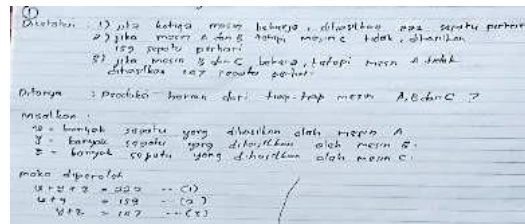 ①
Diketahui : 1) jika ketiga mesin bekerja, dihasilkan 222 sepatu perhari
2) jika mesin A dan B tetapi mesin C tidak, dihasilkan
159 sepatu perhari
3) jika mesin B dan C bekerja, tetapi mesin A tidak
dihasilkan 147 sepatu perhari.
Ditanya : Produksi harian dari tiap-tiap mesin A, B dan C ?
misalkan :
= banyak sepatu yang dihasilkan oleh mesin A
y = banyak sepatu yang dihasilkan oleh mesin B.
z = banyak sepatu yang dihasilkan oleh mesin C.
maka diperoleh
x + y + z = 222 -- (1)
x + y = 159 -- (2)
y + z = 147 -- (3)